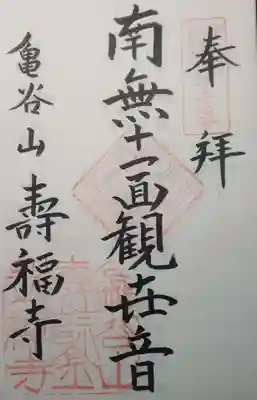 奉拝
南無十一面観世音
亀谷山壽福寺